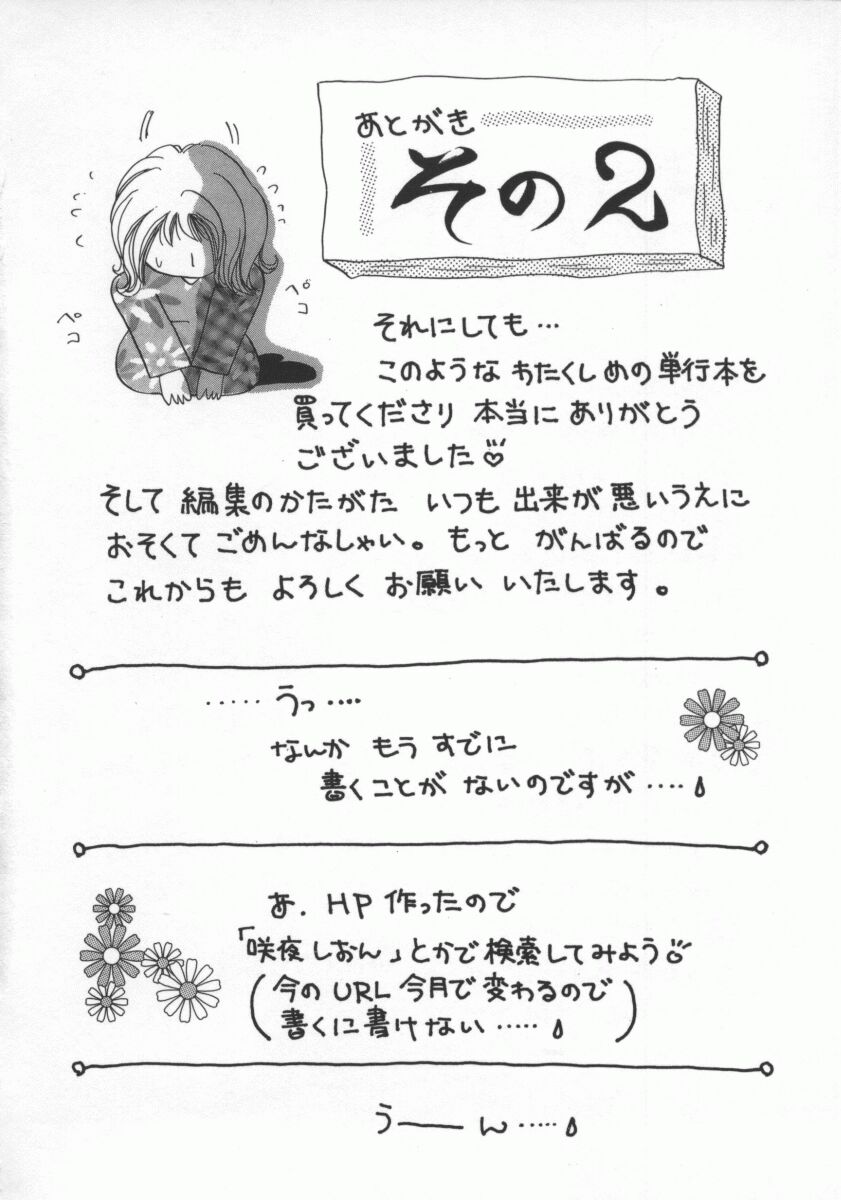 あとがき
その2
ペコ
ペコ
それにしても…
このような わたくしめの単行本を
買ってくださり 本当に ありがとう
ございました♡
そして 編集のかたがた いつも 出来が悪いうえに
おそくて ごめんなしゃい。もっと がんばるので
これからも よろしく お願い いたします。
‥‥‥うっ‥‥
なんか もう すでに
書くことが ないのですが‥‥
あ. HP 作ったので
「咲夜しおん」とかで検索してみよう♡
(今の URL 今月で 変わるので
書くに書けない‥‥‥)
うーーん‥‥‥